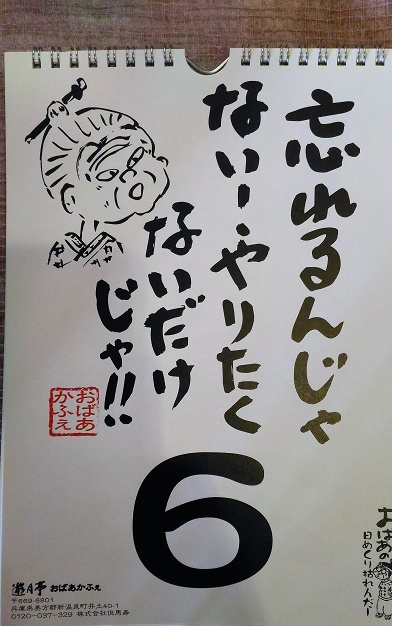 忘れるんじゃ
ない!・やりたく
ないだけ
じゃ!!
おばあ
かふぇ
6
おばあの
日めくり枯れんだー
遊月亭 おばあかふぇ
〒669-6801
兵庫県美方郡新温泉町井土40-1
0120-037-329 株式会社但馬寿